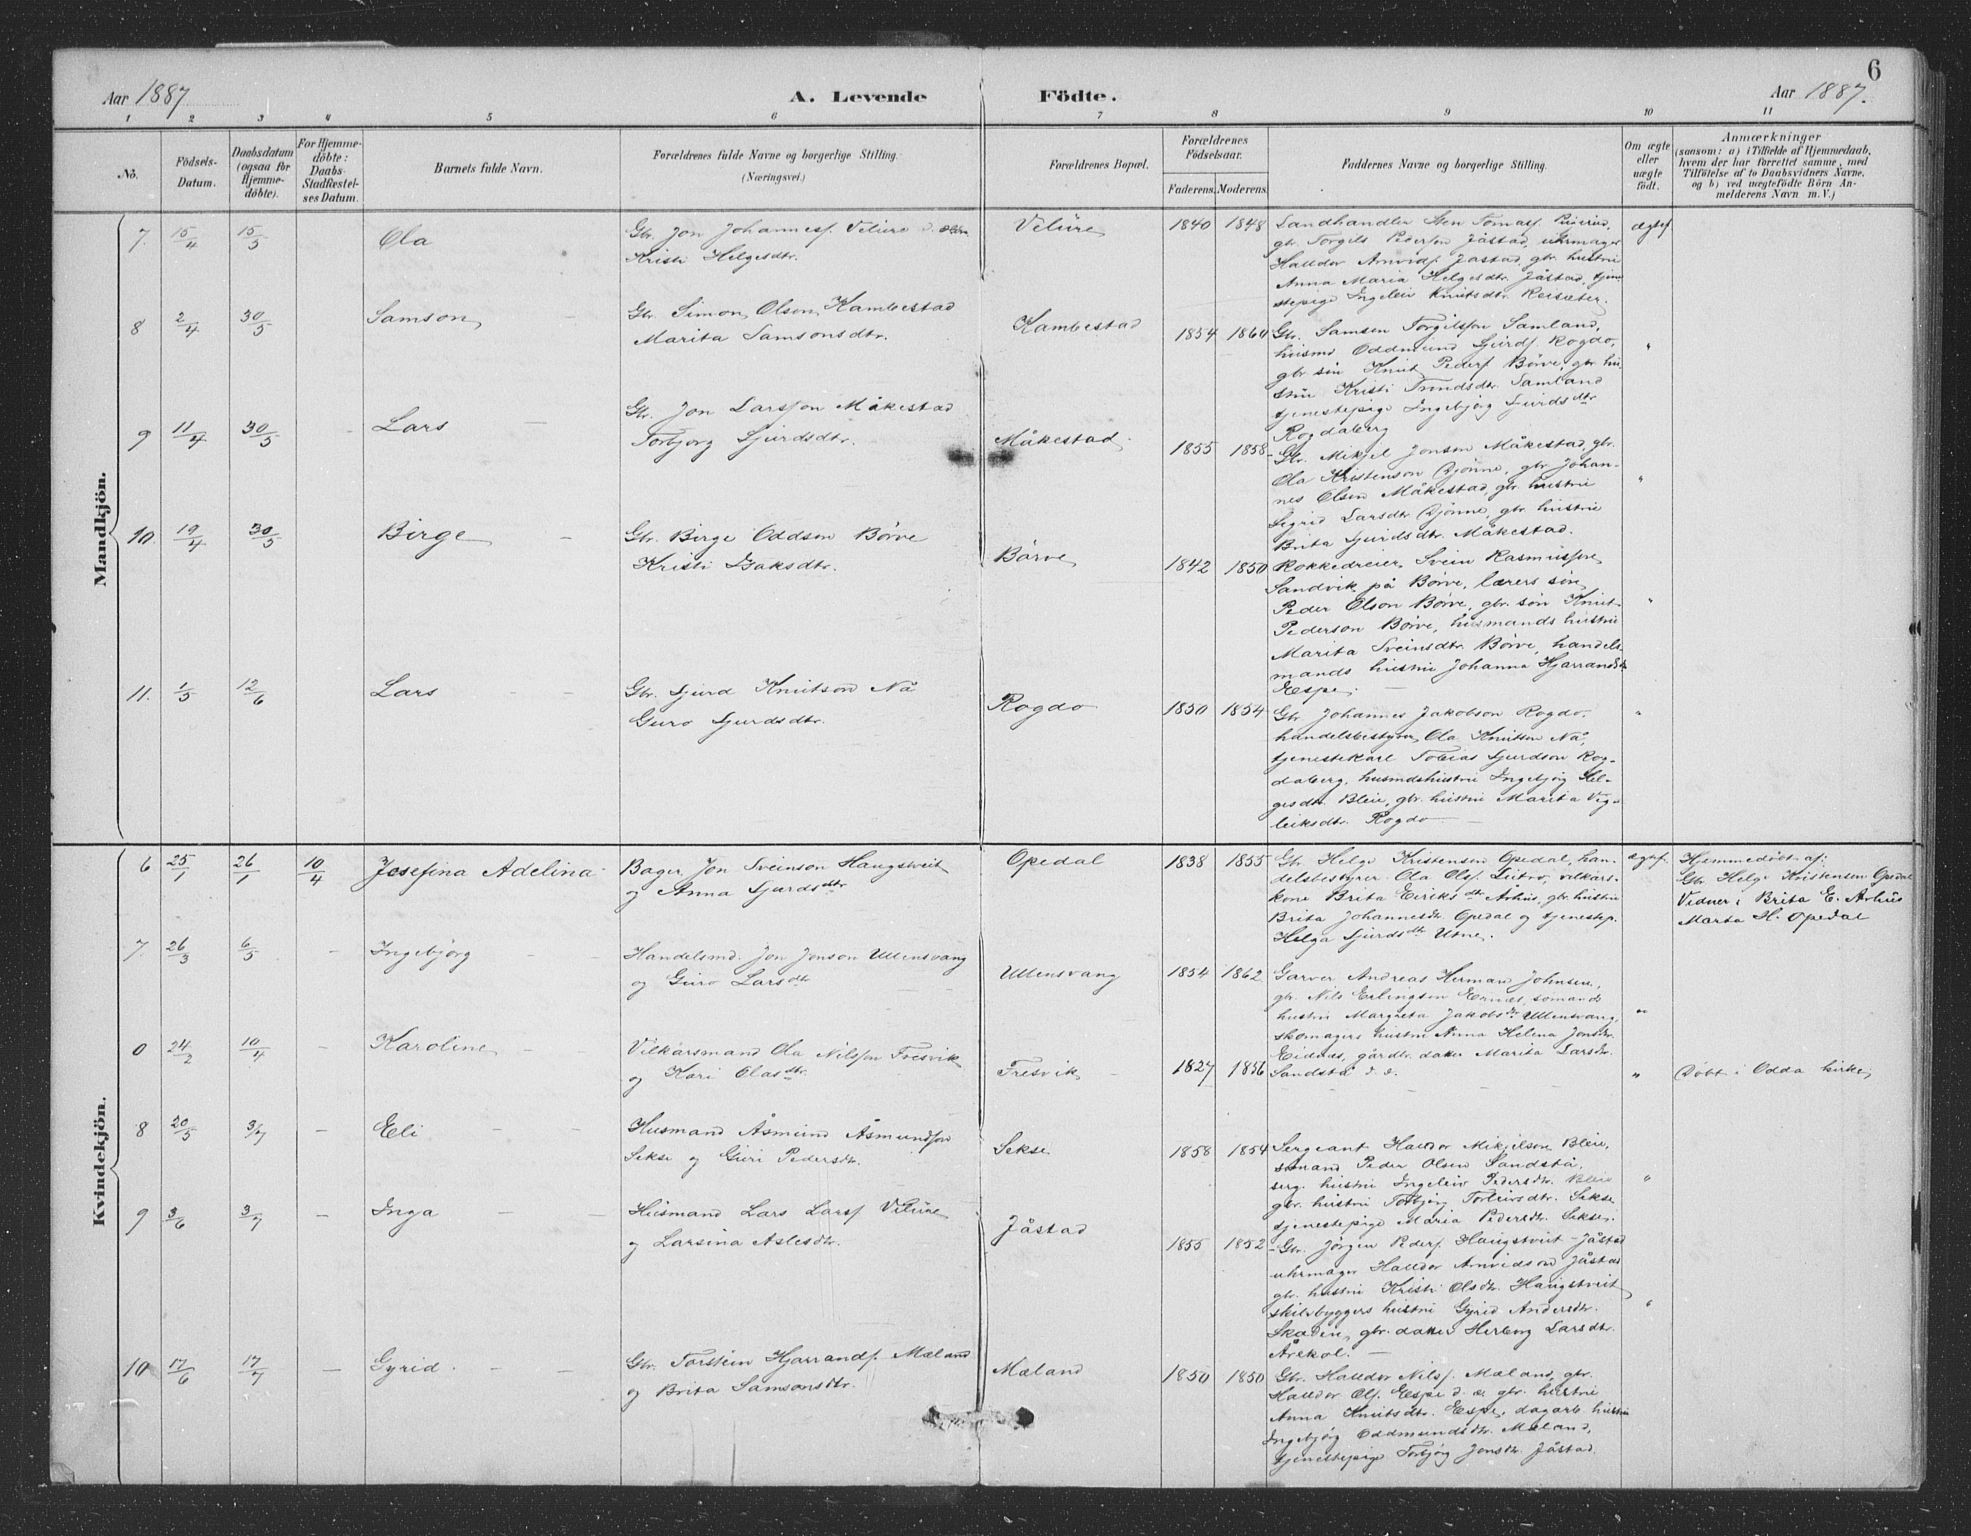 6
Aar 1887.
A. Levende Födte.
Aar 1887.
1 2 3 4 5 6 7 8 9 10 11
No.
Födsels-
Datum.
Daabsdatum
(ogsaa for
Hjemme-
döbte).
For Hjemme-
döbte:
Daabs-
Stadfæstel-
ses Datum.
Barnets fulde Navn.
Forældrenes fulde Navne og borgerlige Stilling.
(Næringsvei.)
Forældrenes Bopæl.
Forældrenes
Födselsaar.
Faderens. Moderens.
Faddernes Navne og borgerlige Stilling.
Om ægte
eller
uægte
födt.
Anmærkninger
(saasom: a) i Tilfælde af Hjemmedaab,
hvem der har forrettet samme, med
Tilföielse af to Daabsvidners Navne,
og b) ved uægtefödte Börn An-
melderens Navn m. V.)
Mandkjön.
7. 15/4 15/5 Ola
Gbr. Jon Johannesf. Velure
Kristi Helgesdtr.
Velure 1840 1848
Landhandler Sten Tomasf.
gbr. Torgils Pederson Jåstad, uhrmager
Halldor Arnvidf. Jåstad, gbr. hustru
Anna Maria Helgesdtr. Jåstad, tjene-
stepige Ingeleiv Knutsdtr. Reisæter.
ægtef
8 2/4 30/5 Samson
Gbr. Simon Olson Kambestad
Marita Samsonsdtr.
Kambestad 1854 1860
Gbr. Samson Torgilsson Samland,
husmd Oddmund Sjurdf. Rogdo,
gbr. sön Knut Pederf. Börve, gbr. hu-
stru Kristi Samland
tjenestepige Ingebjörg Sjurdsdtr
Rogdaberg
"
9 11/4 30/5 - Lars
Gbr. Jon Larsson Måkestad
Torbjorg Sjurdsdtr.
Måkestad. 1855 1858
Gbr. Mikjel Jonson Måkestad, gbr.
Ola Kristenson Djönne, gbr Johan-
nes Olson Måkestad, gbr. hustru
Sigrid Larsdtr Djönne, gbr. hustru
Brita Sjurdsdtr. Måkestad.
"
10. 19/4 30/5 Birge
Gbr. Birge Oddson Börve
Kristi Isaksdtr.
Börve 1842 1850
Rokkedreier Svein Rasmussen
Sandvik på Börve, lærers sön
Peder Olson Börve, gbr. sön Knut
Pederson Börve, husmands hustru
Marita Sveinsdtr Börve, handels-
mands hustru Johanna Hjarrandsdtr
Espe.
"
11. 1/5 12/6 Lars
Gbr. Sjurd Knutson Nå
Guro Sjurdsdtr.
Rogdo 1850 1854
Gbr Johannes Jakobson Rogdo,
handelsbestyrer Ola Knutson Nå,
tjenestekarl Tobias Sjurdson Rog-
daberg, husmdshustru Ingebjörg Hel-
gesdtr. Bleie, gbr. hustru Marita Vig-
leiksdtr. Rogdo
"
Kvindekjön.
6 25/1 26/1 10/4 Josefina Adelina
Bager Jon Sveinson Haugstveit
og Anna Sjurdsdtr
Opedal 1838 1855
Gbr. Helge Kristensen Opedal, han-
delsbestyrer Ola Olsf. vilkårs-
kone Brita Eiriksdtr Århus, gbr. hustru
Brita Johannesdr. Opedal og tjenestep.
Helga Sjurdsdtr Utne.
ægtef.
Hjemmedöbt af:
Gbr. Helge Kristensen Opedal
Vidner: Brita E. Århus
Marta H. Opedal
7. 26/3 6/5 - Ingebjörg
Handelsmd. Jon Jonson Ullensvang
og Guro Larsdtr
Ullensvang 1854 1862
Garver Andreas Herman Johnsen,
gbr. Nils Erlingsen sömands
hustru Margreta Jakobsdtr Ullensvang,
skomagers hustru Anna Helena Jonsdtr
Eidnes, gårdbr. datter Marita Larsdtr.
Sandstå
"
0 24/2 10/4 - Karoline
Vilkårsmand Ola Nilsson Fresvik
og Kari Olasdtr.
Fresvik 1827 1856
"
Döbt i Odda kirke
8 20/5 3/7 - Eli
Husmand Åsmund Åsmundson
Sekse og Guri Pedersdtr.
Sekse 1858 1854
Sergeant Halldor Mikjelson Bleie,
sömand Peder Olsen Sandstå,
serg. hustru Ingeleiv Pedersdtr. Bleie
gbr. hustru Torbjörg Torleivsdtr. Sekse
tjenestepige Maria Pedersdtr. Sekse.
"
9 3/6 3/7 - Inga
Husmand Lars Larsf. Velure
og Larsina Aslesdtr.
Jåstad 1855 1852
Gbr. Jörgen Pederf. Haugstveit - Jåstad
uhrmager Halldor Arnvidson Jåstad
gbr. hustru Kristi Olsdtr. Haugstveit
skibsbyggers hustru Gyrid Andersdtr.
Skaden, gbr. datter Herborg Larsdtr.
Årekol.
"
10 17/6 17/7 - Gyrid
Gbr. Torstein Hjarrandf. Mæland
og Brita Samsonsdtr.
Mæland 1850 1850
Gbr. Halldor Nilsf. Mæland, gbr.
Halldor Olf. Espe d. æ gbr. hustru
Anna Knutsdtr. Espe, dagarb. hustru
Ingebjörg Oddmundsdtr. Mæland,
tjenestepige Torbjörg Jonsdtr. Jåstad.